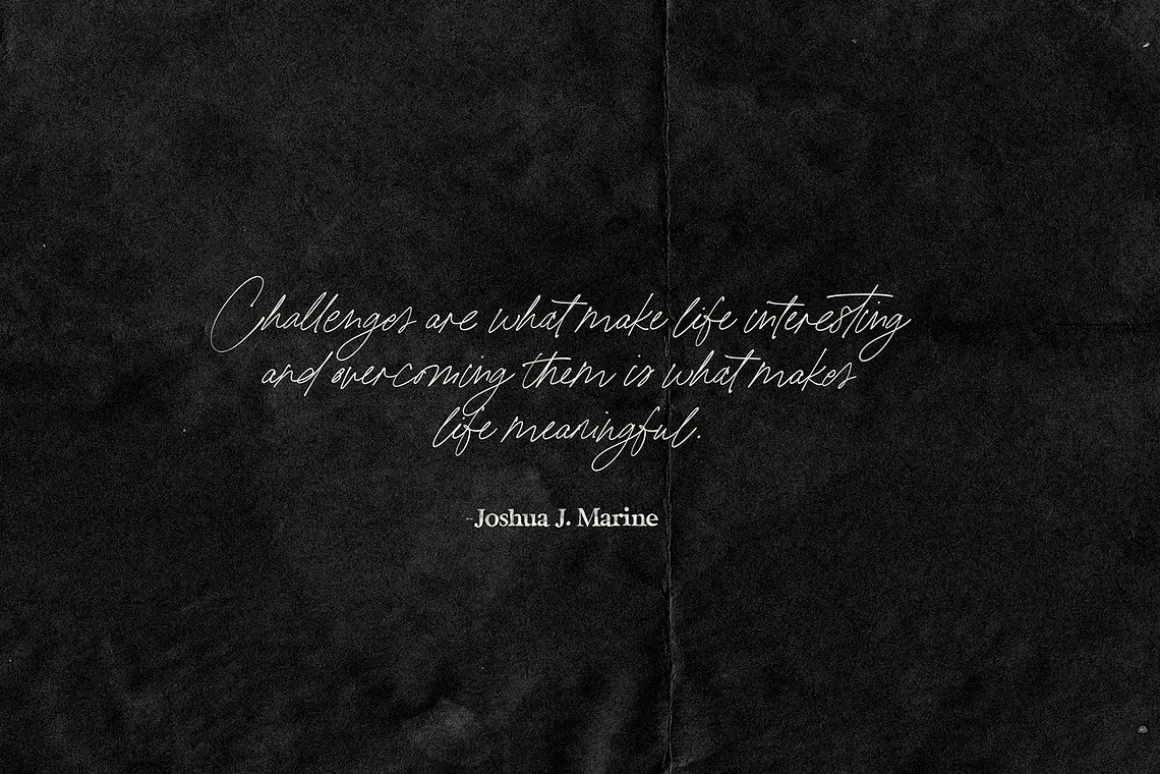 Challenges are what make life interesting
and overcoming them is what makes
life meaningful.
-Joshua J. Marine